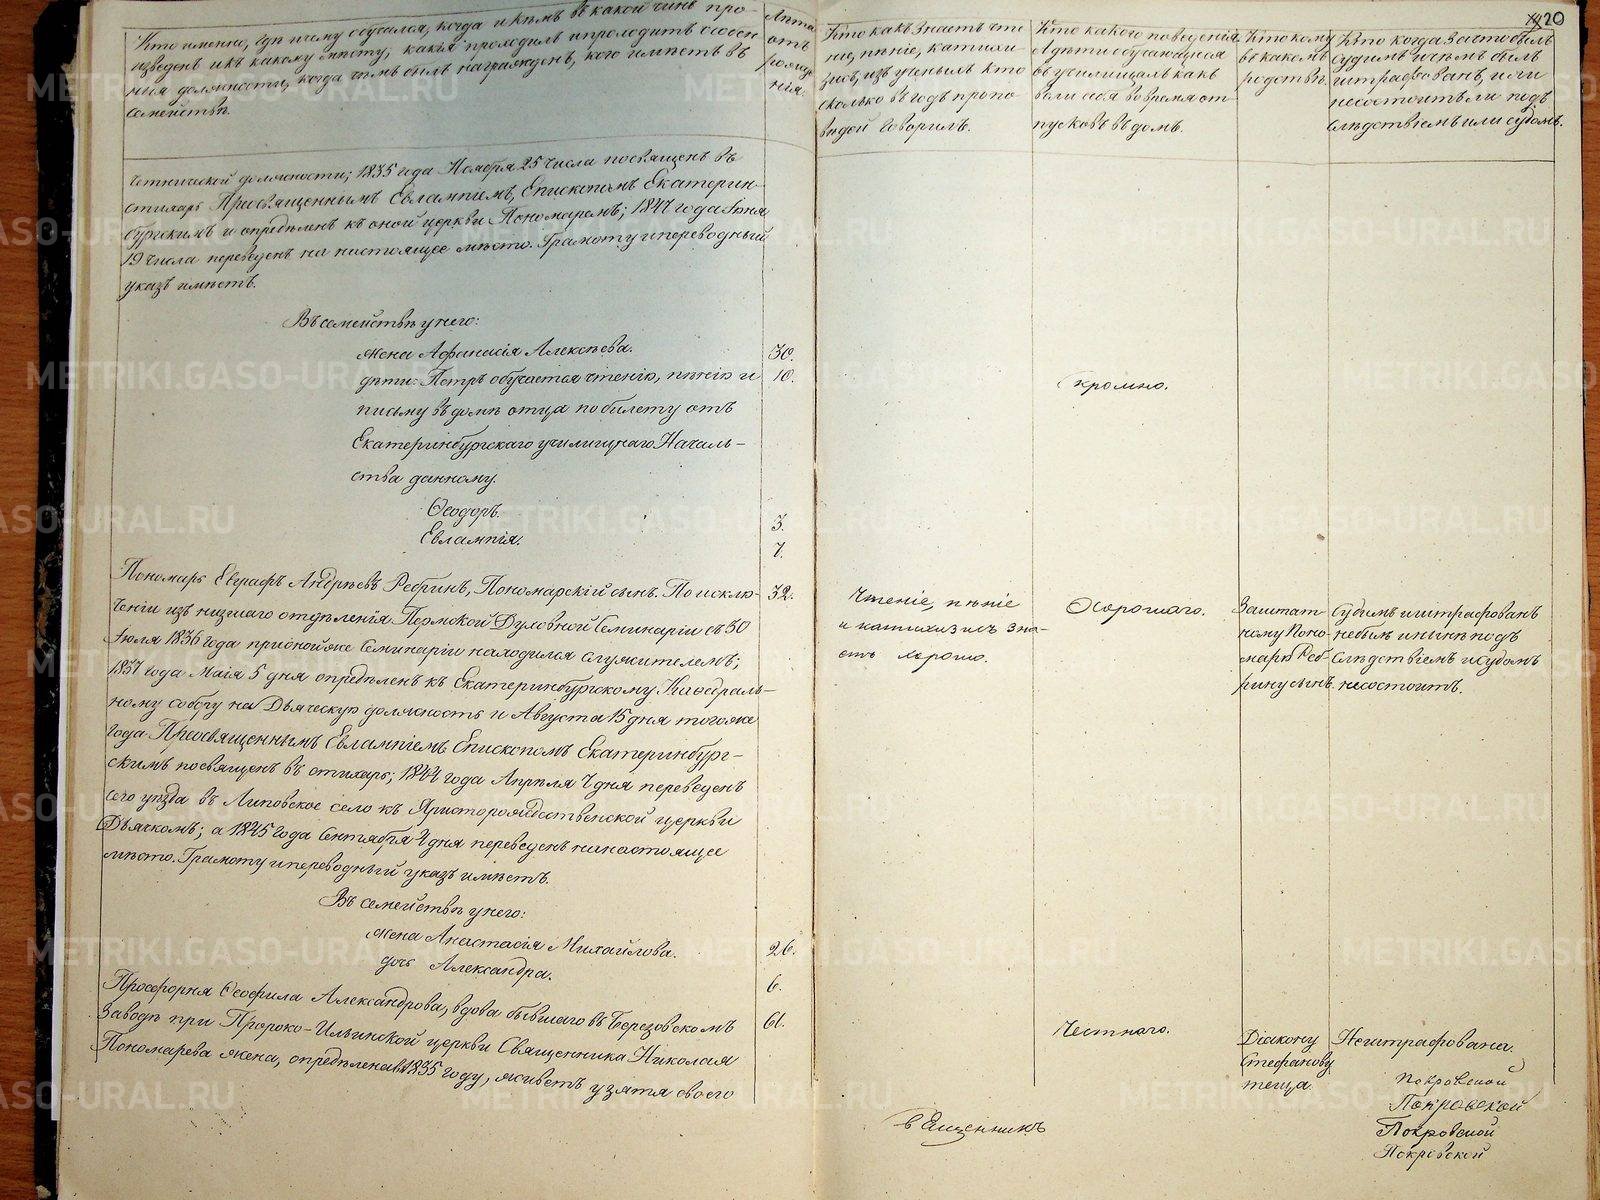 20
Кто именно, где и чему обучался, когда и кѣмъ въ какой чинъ про-
изведенъ и къ какому мѣсту, какія проходилъ и проходитъ особен-
ныя должности, когда чѣмъ былъ награжденъ, кого имѣетъ въ
семействѣ.
Лѣта
отъ
рожде-
нія.
Кто какъ знаетъ чте-
ніе, пѣніе, катихи-
зисъ, изъ ученыхъ кто
сколько въ годъ пропо-
вѣдей говорилъ.
Кто какого поведенія
и дѣти обучающіеся
въ училищахъ какъ
вели себя во время от-
пусковъ въ домъ.
Кто кому
въ какомъ
родствѣ.
Кто когда за что былъ
судимъ и чѣмъ былъ
штрафованъ, или
несостоитъ ли подъ
слѣдствіемъ или судомъ.
четнической должности; 1835 года Ноября 25 числа посвященъ въ
стихарь Преосвященнымъ Евлампіемъ, Епископомъ Екатерин-
бургскимъ и опредѣленъ къ оной церкви Пономаремъ; 1847 года Іюня
19 числа переведенъ на настоящее мѣсто. Грамоту и переводный
указъ имѣетъ.
Въ семействѣ у него:
жена Афанасія Алексѣева. 30.
дѣти: Петръ обучается чтенію, пѣнію и 10. Скромно.
письму въ домѣ отца по билету отъ
Екатеринбургскаго училищнаго Началь-
ства данному.
Ѳеодоръ. 3.
Евлампія. 7.
Пономарь Евграфъ Андрѣевъ Ребринъ, Пономарскій сынъ. По исклю- 32.
ченіи изъ низшаго отдѣленія Пермской Духовной Семинаріи съ 30
Іюля 1836 года при оной же Семинаріи находился служителемъ;
1837 года Маія 5 дня опредѣленъ къ Екатеринбургскому Каѳедраль-
ному собору на Дьяческую должность и Августа 15 дня того же
года Преосвященнымъ Евлампіемъ Епископомъ Екатеринбург-
скимъ посвященъ въ стихарь; 1844 года Апрѣля 4 дня переведенъ
сего уѣзда въ Липовское село къ Христорождественской церкви
Дьячкомъ; а 1845 года Сентября 4 дня переведенъ на настоящее
мѣсто. Грамоту и переводный указъ имѣетъ.
Чтеніе, пѣніе
и катихизисъ зна-
етъ хорошо.
Хорошаго.
Заштат-
ному Поно-
марю Реб-
рину сынъ.
Судимъ и штрафованъ
не былъ и нынѣ подъ
слѣдствіемъ и судомъ
несостоитъ.
Въ семействѣ у него:
жена Анастасія Михайлова. 26.
дочь Александра. 6.
Просфорня Ѳеофила Александрова, вдова бывшаго въ Березовскомъ 61.
Заводѣ при Пророко-Ильинской церкви Священника Николая
Пономарева жена, опредѣлена въ 1835 году, живетъ у зятя своего
Честнаго.
Діакону
Стефанову
теща.
Нештрафована.
Покровской
Покровской
Покровской
Покровской